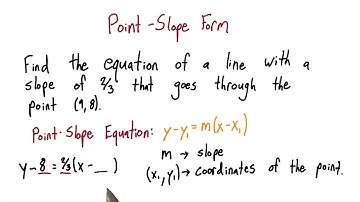 Point-Slope Form
Find the equation of a line with a
slope of 2/3 that goes through the
point (9,8).
Point-Slope Equation: y-y₁=m(x-x₁)
m → slope
(x₁,y₁)→ coordinates of the point.
y-8=2/3(x-__)